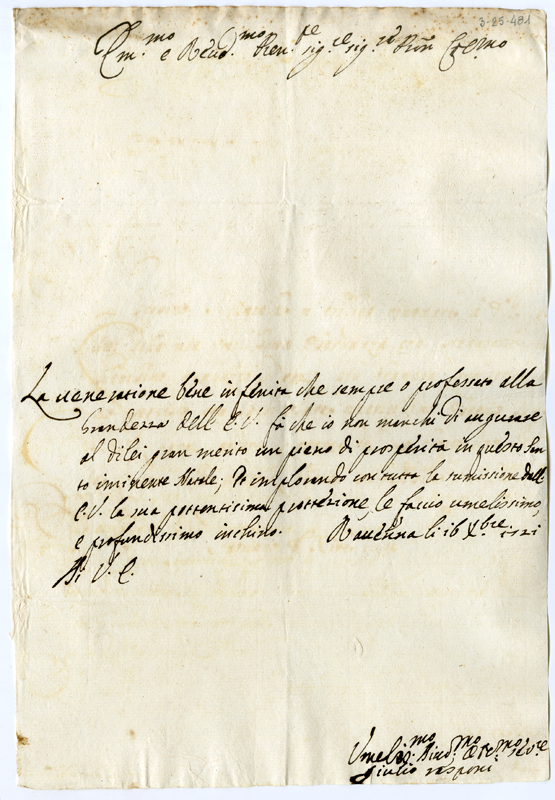 3-25-481
Em.mo e Reud.mo Ren.te sig.re sig.re Rõn Col.mo
La ueneratione bene infenita che sempre o professato alla
Grandezza dell E.V. fà che io non manchi di augurare
al dilei gran merito un pieno di prosperità in questo San
to iminente Natale; Et implorando con tutta la sumissione dall
E.V. la sua pottentissima prottezione, le faccio umelissimo,
e profundissimo inchino. Rauenna li 16 Xbre 1721
Di V. E.
Umeliss.mo Diuo.mo
Giulio rasponi